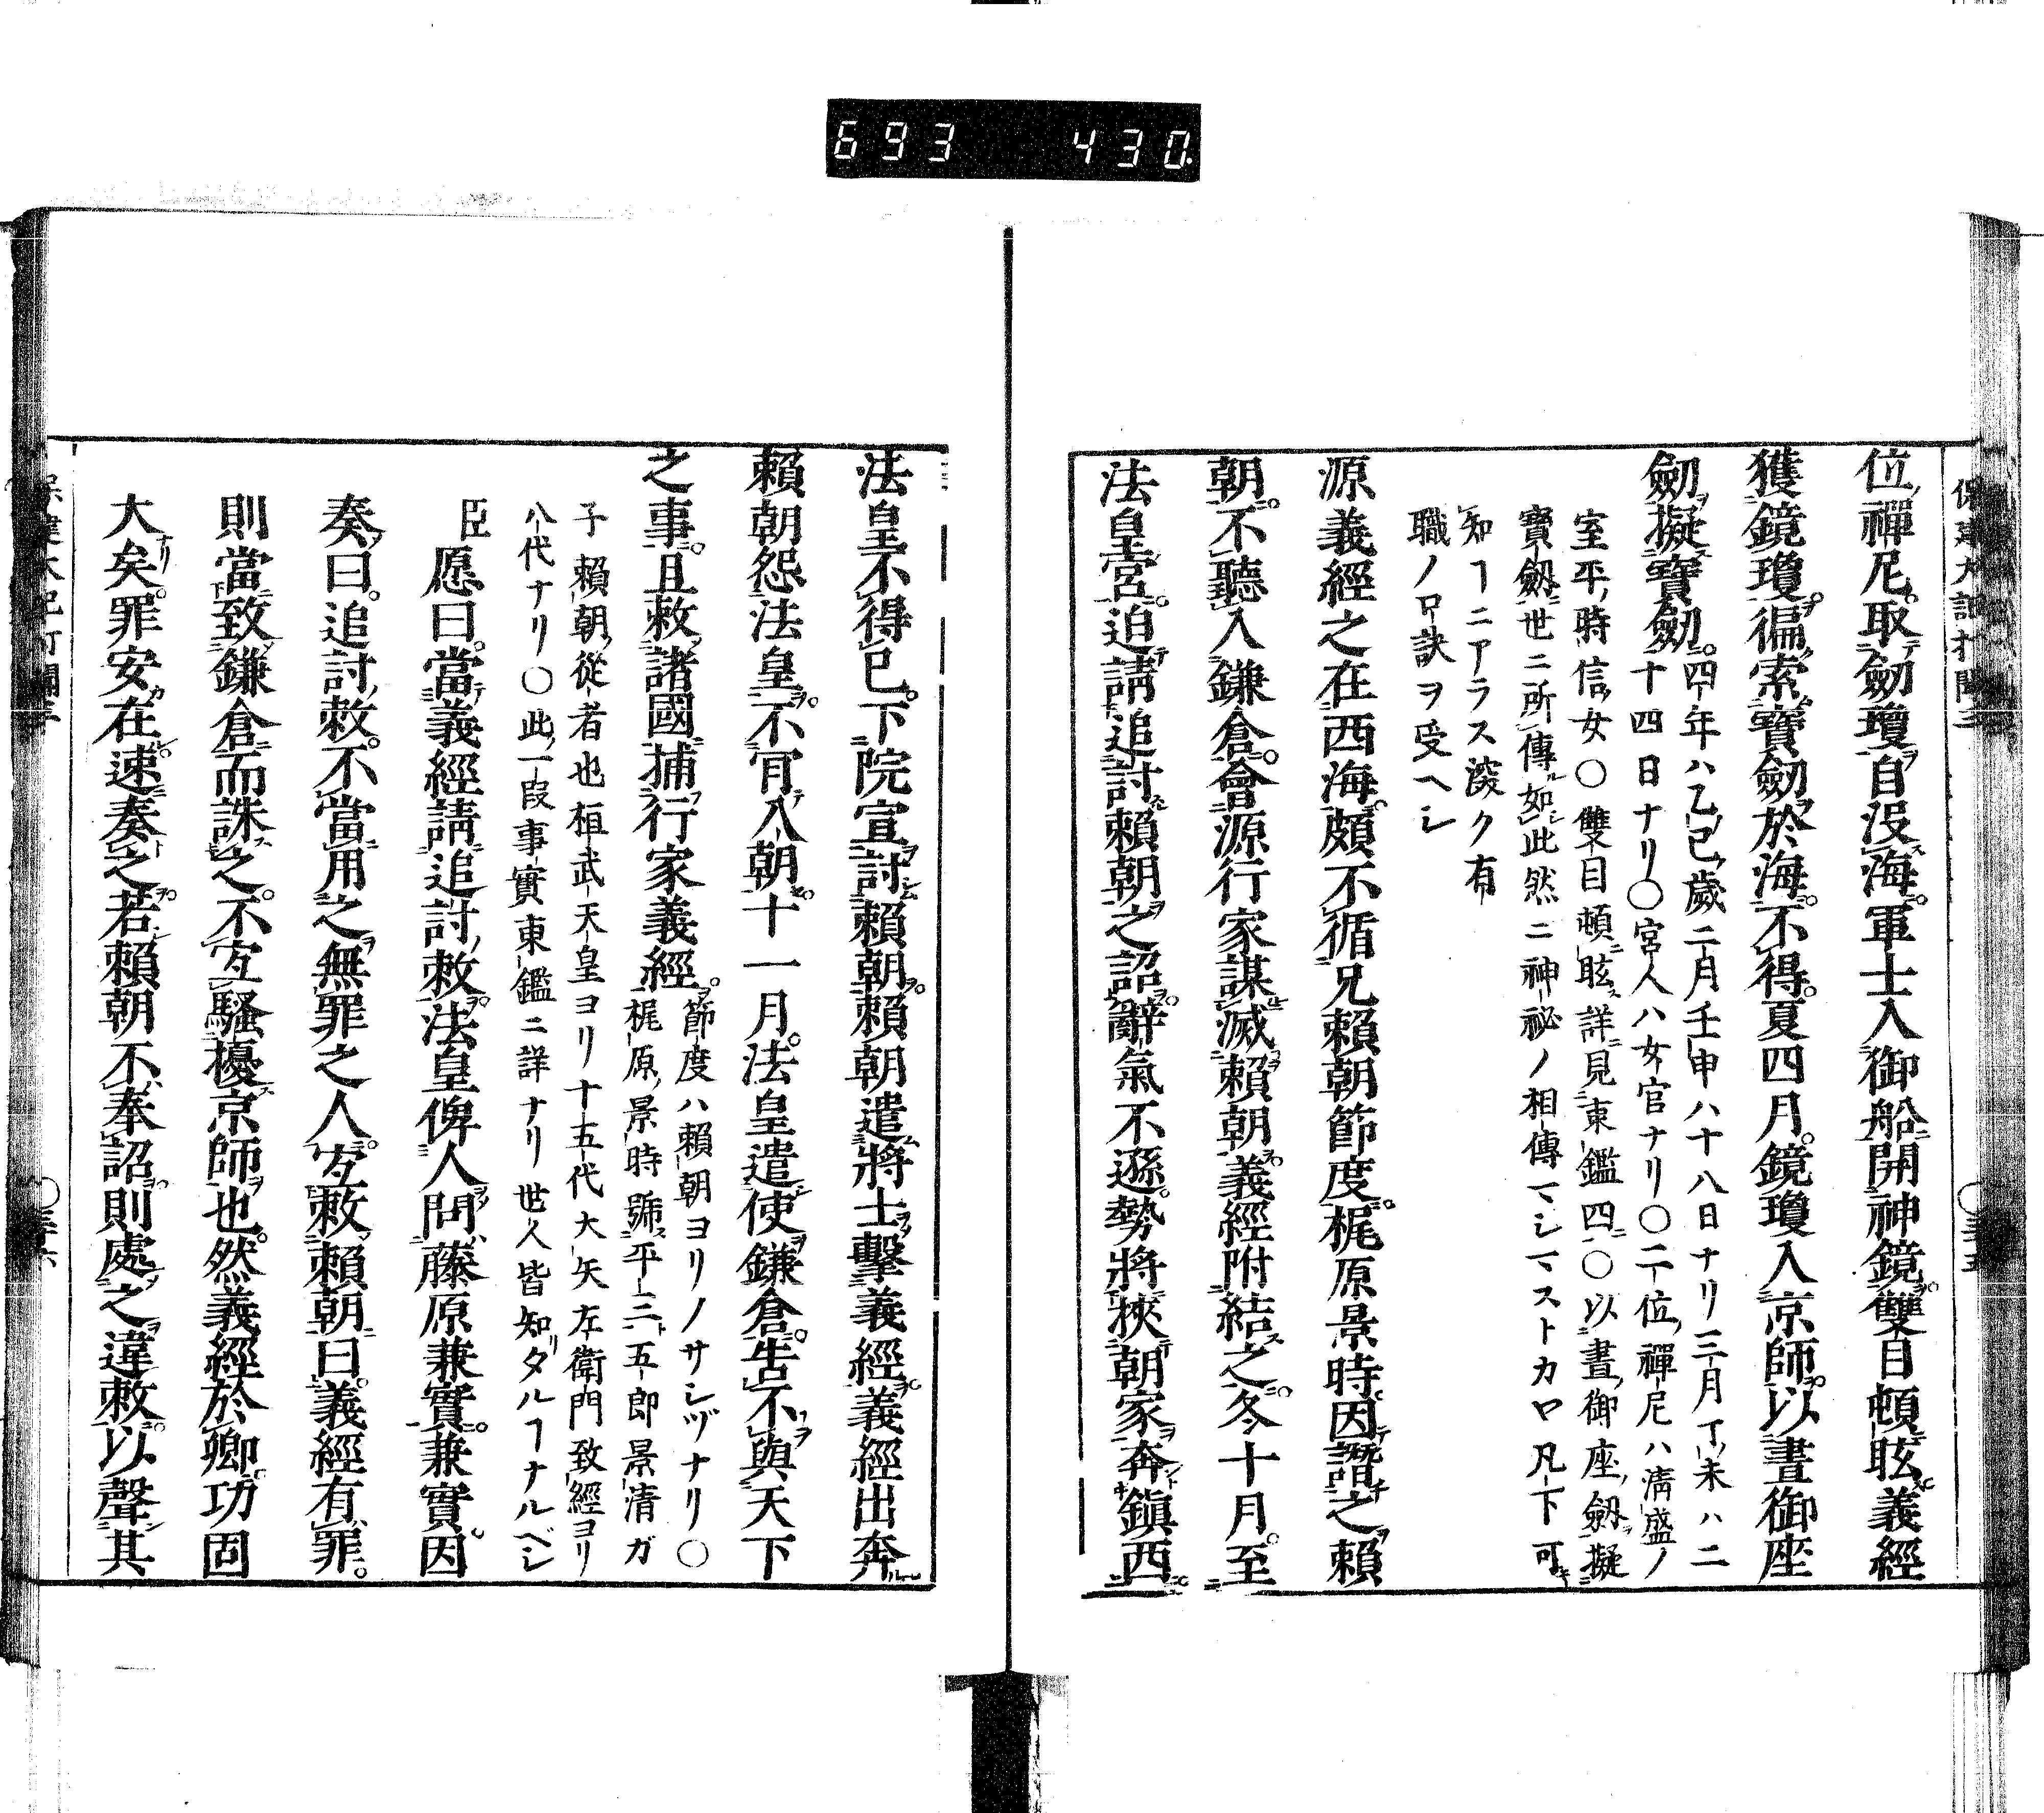 693 430
保建大記打聞三
位禪尼。取劒瓊自沒海。軍士入御船開神鏡。雙目頓眩。義經
獲鏡瓊。徧索寶劒於海。不得。夏四月。鏡瓊入京師。以晝御座
劒擬寶劒。四年ハ乙巳歲二月壬申ハ十八日ナリ三月丁未ハ二
十四日ナリ○宮人ハ女官ナリ○二位禪尼ハ淸盛ノ
室平時信女○雙目頓眩詳見東鑑四○以晝御座劒擬
寶劒世ニ所傳如此然ニ神祕ノ相傳マシマストカヤ凡下可
知ヿニアラス深ク有
職ノ口訣ヲ受ヘシ
源義經之在西海。頗不循兄賴朝節度。梶原景時。因譖之賴
朝。不聽入鎌倉。會源行家謀滅賴朝。義經附結之。冬十月。至
法皇宮。迫請追討賴朝之詔。辭氣不遜。勢將挾朝家奔鎭西。
法皇不得已。下院宣討賴朝。賴朝遣將士擊義經。義經出奔。
賴朝怨法皇。不肎入朝。十一月。法皇遣使鎌倉。告不與天下
之事。且敕諸國捕行家義經。節度ハ賴朝ヨリノサシヅナリ○
梶原景時號平二五郎景淸ガ
子賴朝從者也桓武天皇ヨリ十五代大矢左衛門致經ヨリ
八代ナリ○此一段事實東鑑ニ詳ナリ世人皆知タルヿナルベシ
臣愿曰。當義經請追討敕。法皇俾人問藤原兼實。兼實因
奏曰。追討敕。不當用之無罪之人。宐敕賴朝曰。義經有罪。
則當致鎌倉而誅之。不宐騷擾京師也。然義經於卿。功固
大矣。罪安在。速奏之。若賴朝不奉詔。則處之違敕。以聲其